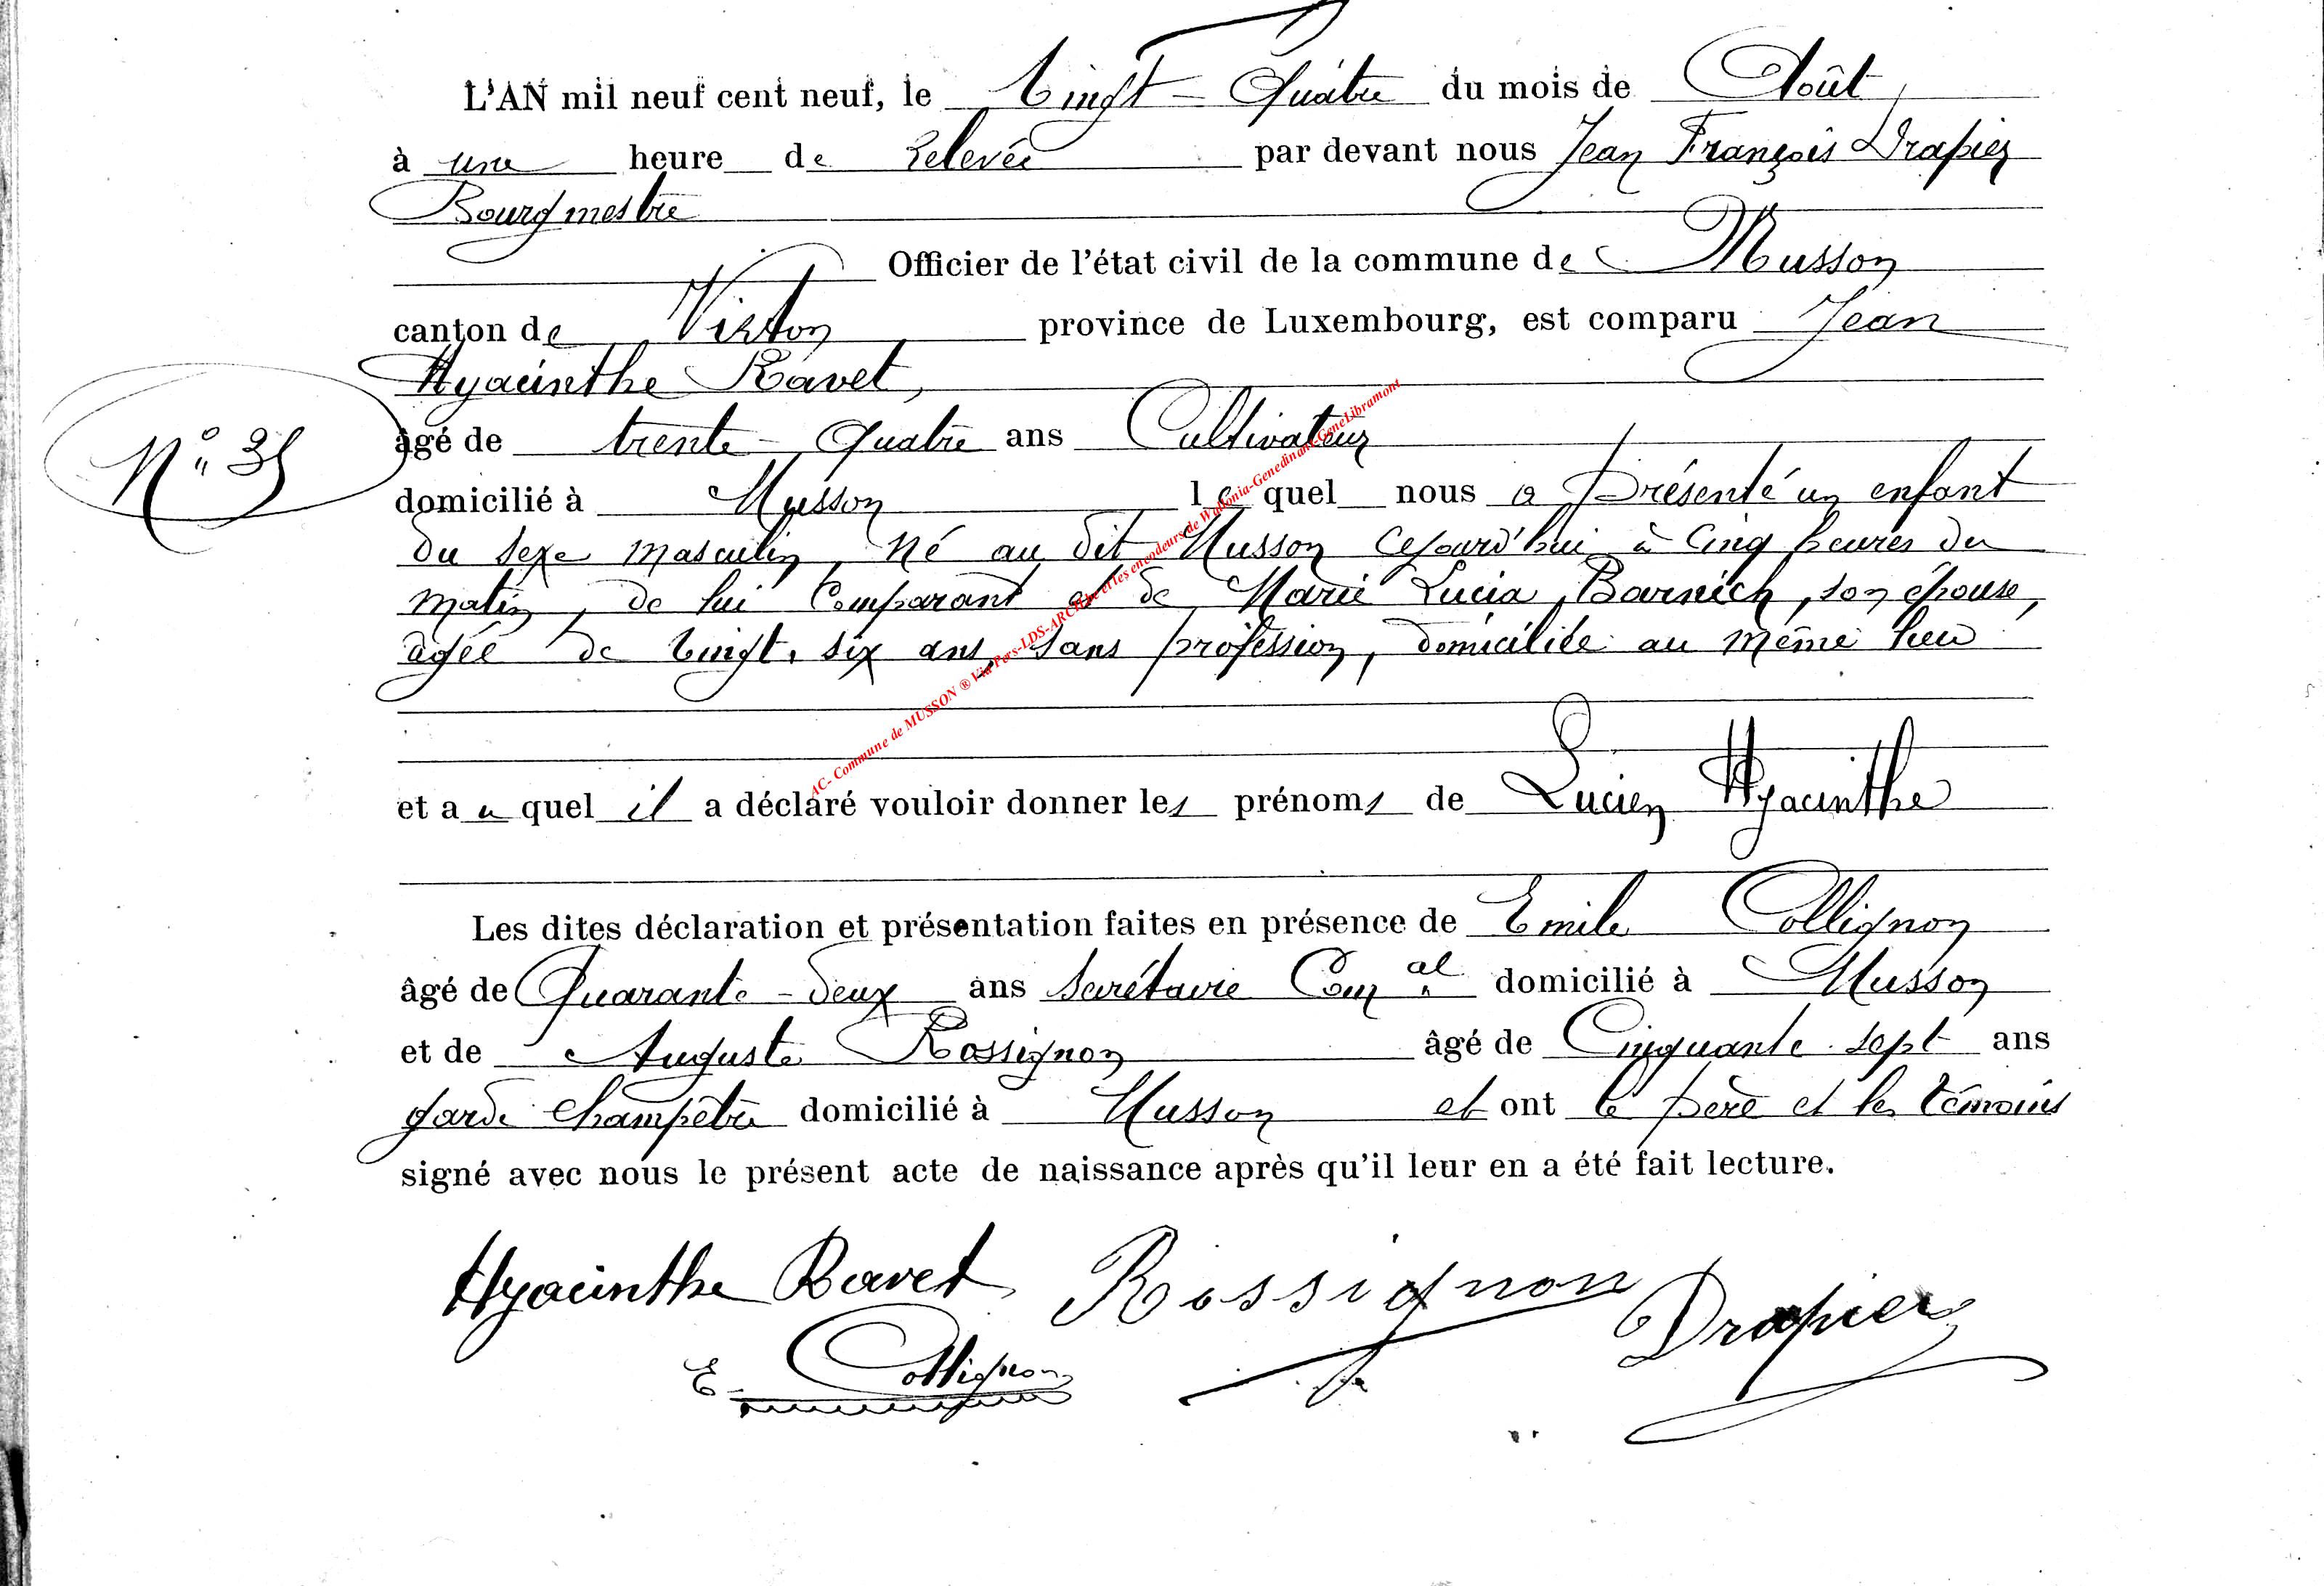 L'AN mil neuf cent neuf, le Vingt-Quatre du mois de Août,
à une heure de relevée par devant nous Jean François Drapier
Bourgmestre
Officier de l'état civil de la commune de Musson
canton de Virton province de Luxembourg, est comparu Jean
Hyacinthe Ravet,
âgé de trente-quatre ans Cultivateur
N° 35
domicilié à Musson lequel nous a présenté un enfant
du sexe masculin, né au dit Musson cejourd'hui à cinq heures du
matin, de lui comparant et de Marie Lucia Barnich, son épouse,
agée de vingt-six ans, sans profession, domiciliée au même lieu
et auquel il a déclaré vouloir donner les prénoms de Lucien Hyacinthe
Les dites déclaration et présentation faites en présence de Emile Collignon
âgé de Quarante-deux ans secrétaire Com.al domicilié à Musson
et de Auguste Rossignon âgé de Cinquante-sept ans
garde champêtre domicilié à Musson et ont le père et les témoins
signé avec nous le présent acte de naissance après qu'il leur en a été fait lecture.
Hyacinthe Ravet Rossignon Drapier
E. Collignon
AC- Commune de MUSSON ® Via Pers-LDS-ARCH.be et les encodeurs de Wallonia-Genedinant-GeneLibramont